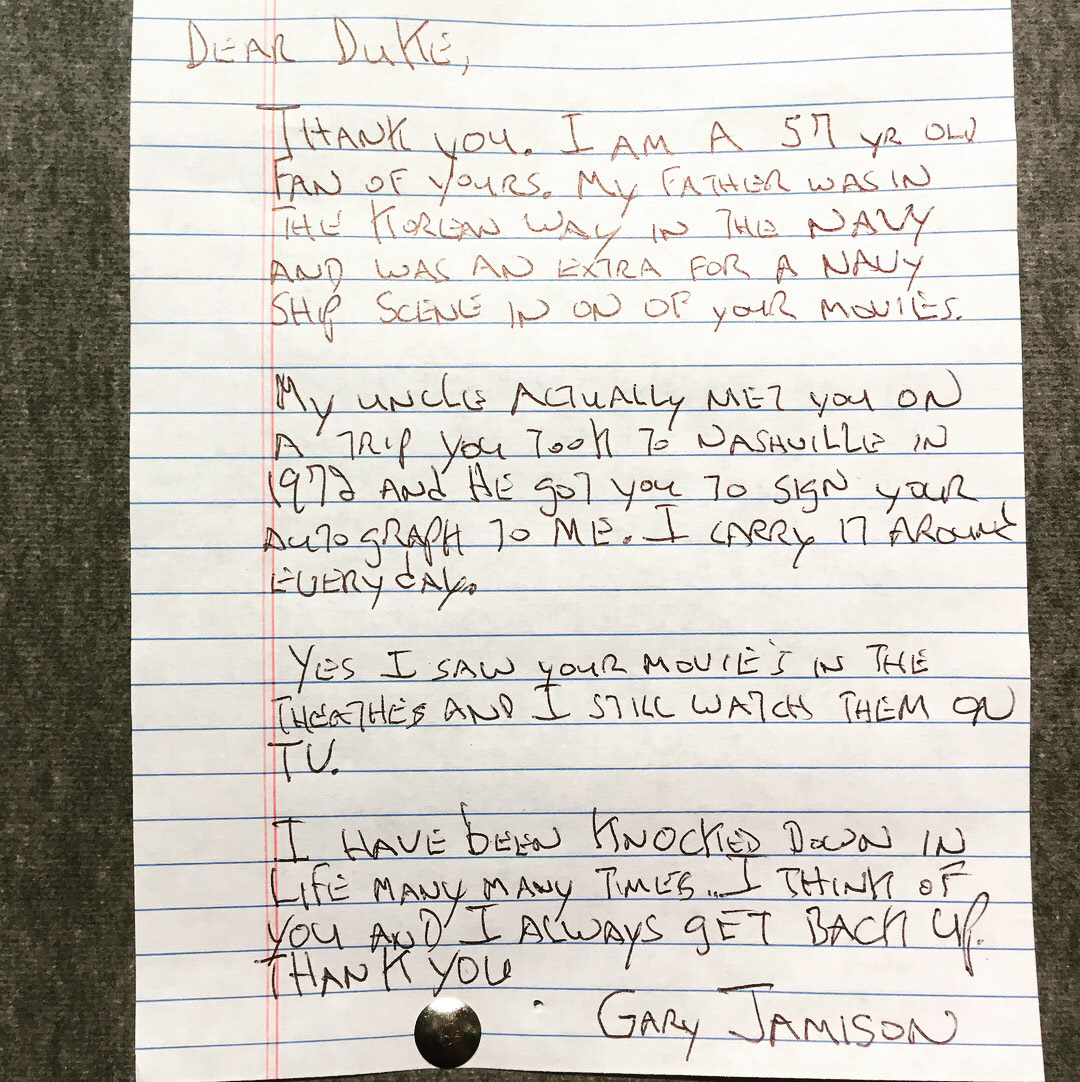 DEAR DUKE,
THANK you. I AM A 57 YR OLD
FAN OF YOURS. MY FATHER WAS IN
THE KOREAN WAY IN THE NAVY
AND WAS AN EXTRA FOR A NAVY
SHIP SCENE IN ON OF youR MOVIES.
My UNCLE ACTUALLY MET you ON
A TRIP YOU TOOK TO NASHVILLE IN
1972 ANd HE goT you TO SIGN youR
AUTOgRAPH TO ME. I CARRY IT AROUND
EVERYdAY.
YES I SAW youR MOVIE'S IN THE
THEATHES AND I STILL WATCH THEM ON
TV.
I HAVE bEEN KNOCKED DOWN IN
LIFE MANY MANY TIMES... I THINK OF
YOU AND I ALWAYS gET BACK UP.
THANK YOU
GARY JAMISON